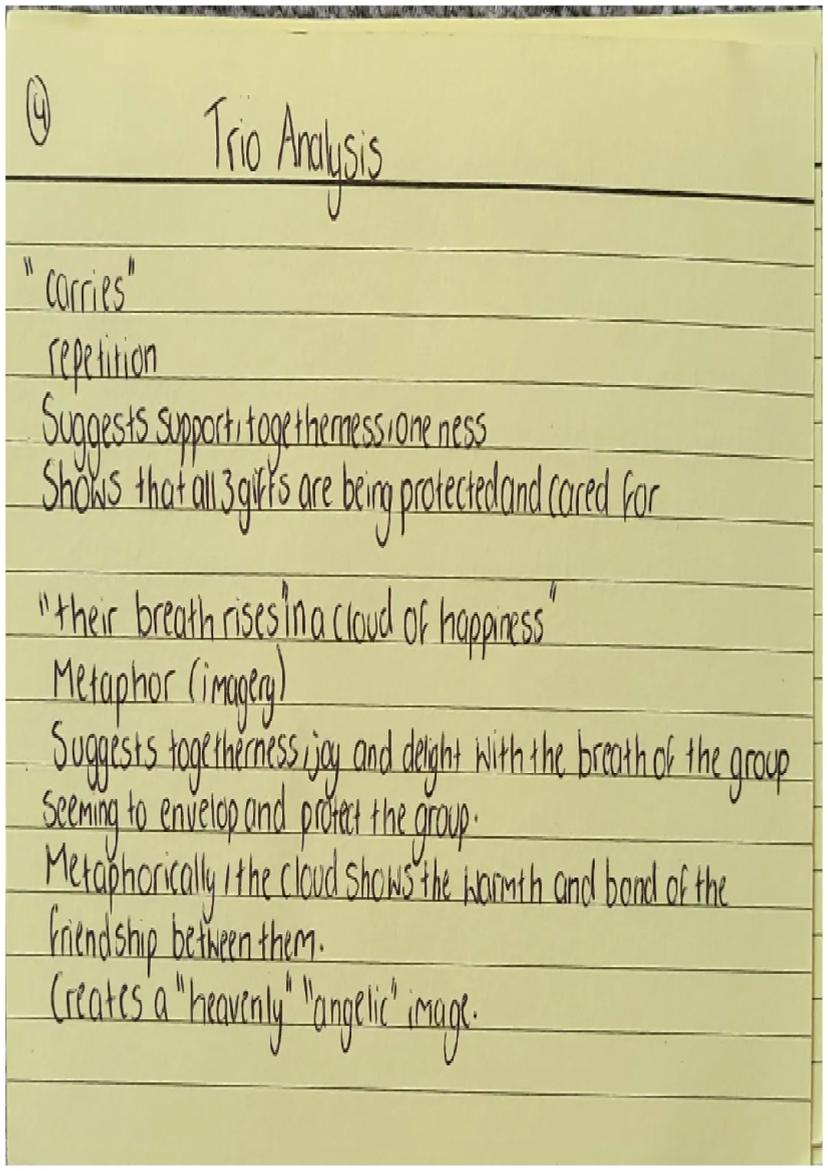 4
Trio Analysis
"carries"
repetition
Suggests support, togetherness, one ness
Shows that all 3 gifts are being protected and cared for
"their breath rises in a cloud of happiness"
Metaphor (imagery)
Suggests togetherness, joy and delight with the breath of the group
seeming to envelop and protect the group.
Metaphorically, the cloud shows the warmth and bond of the
friendship between them.
Creates a "heavenly" "angelic" image.